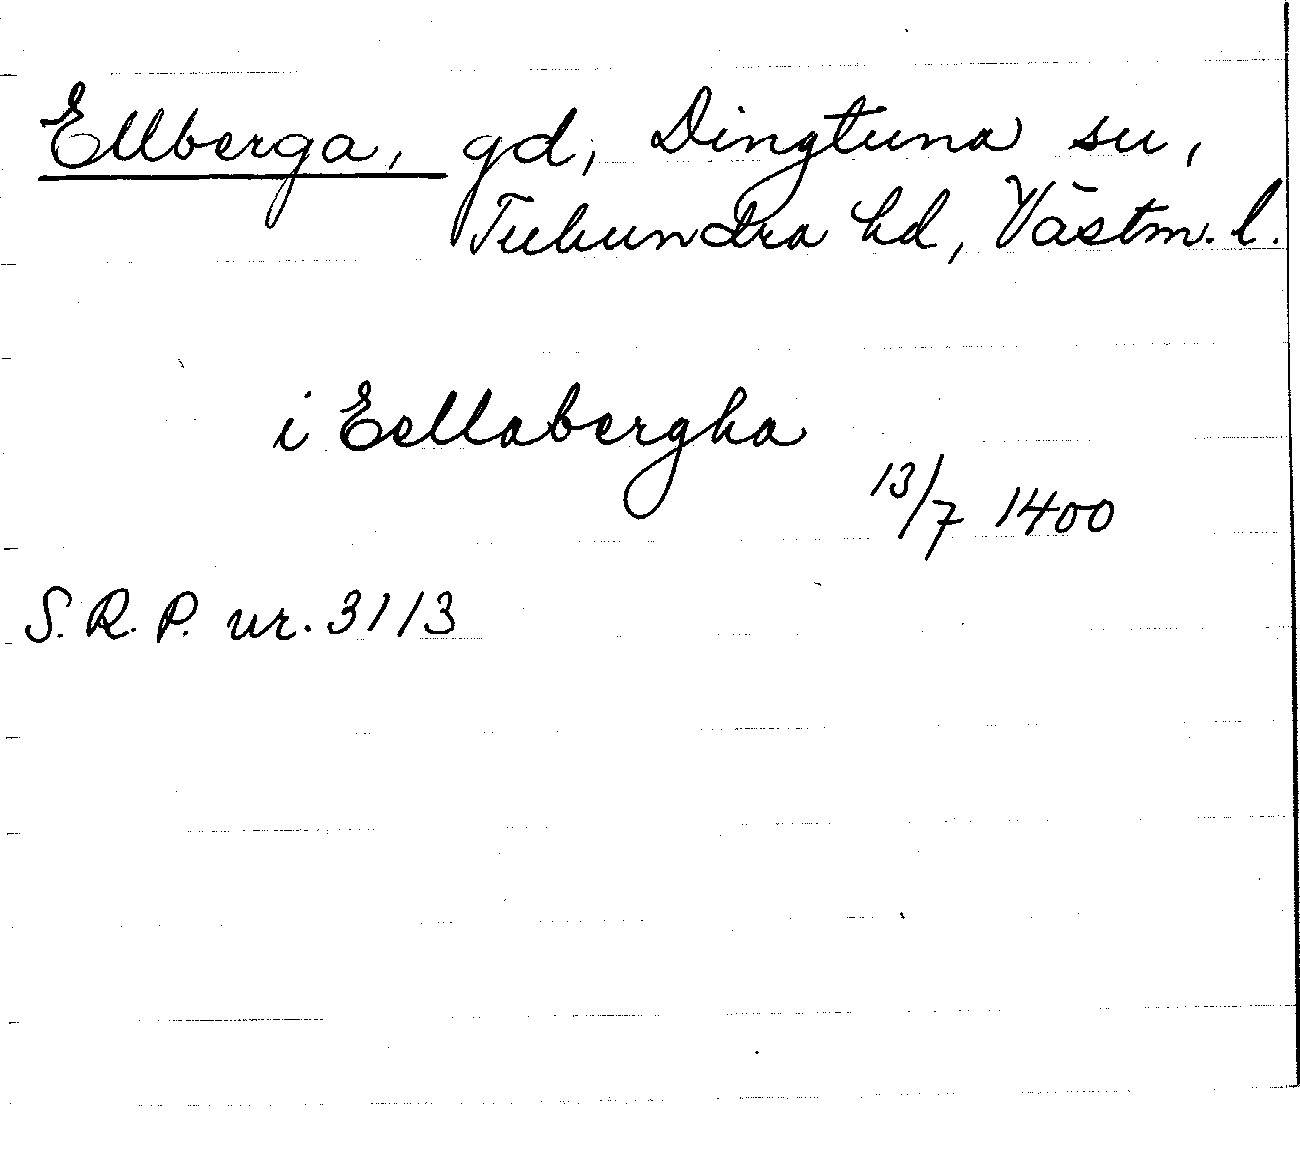 Ellberga, gd, Dingtuna sn,
Tuhundra hd, Västm. l.
i Eellabergha
13/7 1400
S. R. P. nr. 3113